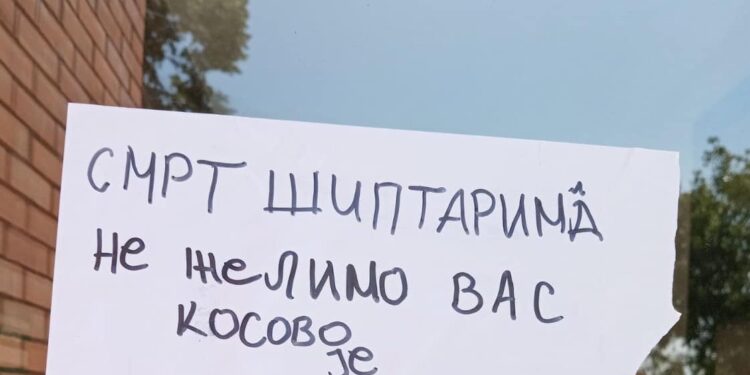 СМРТ ШИПТАРИМА
Не желимо ВАС
КОСОВО
је